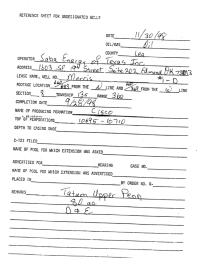 REFERENCE SHEET FOR UNDESIGNATED WELLS
DATE 11/30/98
OIL/GAS Oil
COUNTY Lea
OPERATOR Saba Energy of Texas Inc
ADDRESS 1303 SE Street Suite 202
LEASE NAME, WELL NO. Morris #1-D
FOOTAGE LOCATION FROM THE N LINE AND FROM THE W LINE
SECTION TOWNSHIP 13S RANGE 36E
COMPLETION DATE 9/28/98
NAME OF PRODUCING FORMATION Cisco
TOP OF PERFORATIONS 10695 - 10710
DEPTH TO CASING SHOE
C-123 FILED
NAME OF POOL FOR WHICH EXTENSION WAS ASKED
ADVERTISED FOR HEARING CASE NO.
NAME OF POOL FOR WHICH EXTENSION WAS ADVERTISED
PLACED IN BY ORDER NO. R-
REMARKS Tatum Upper Penn
80 ac
D & E